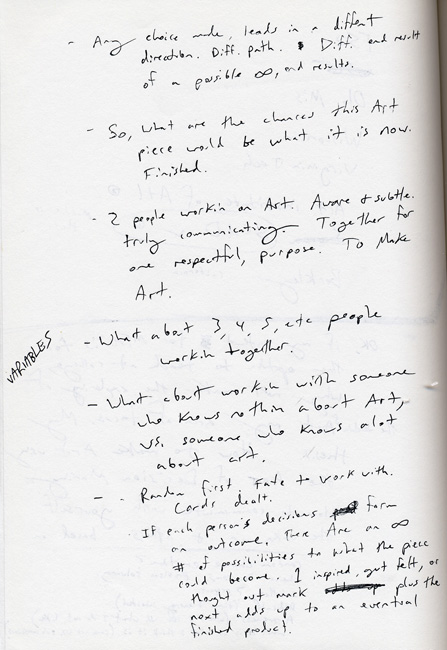 - Any choice made, leads in a different
direction. Diff. path. Diff. end result
of a possible ∞, end results.
- So, what are the chances this Art
piece would be what it is now.
Finished.
- 2 people workin on Art. Aware + subtle.
truly communicating. Together for
one respectful, purpose. To Make
Art.
VARIABLES
- What about 3, 4, 5, etc people
workin together.
- What about workin with someone
who knows nothin about Art,
vs. someone who knows alot
about art.
- . Random first. Fate to work with.
Cards dealt.
. If each person's decisions form
an outcome. There Are an ∞
# of possibilities to what the piece
could become. 1 inspired, gut felt, or
thought out mark plus the
next adds up to an eventual
finished product.